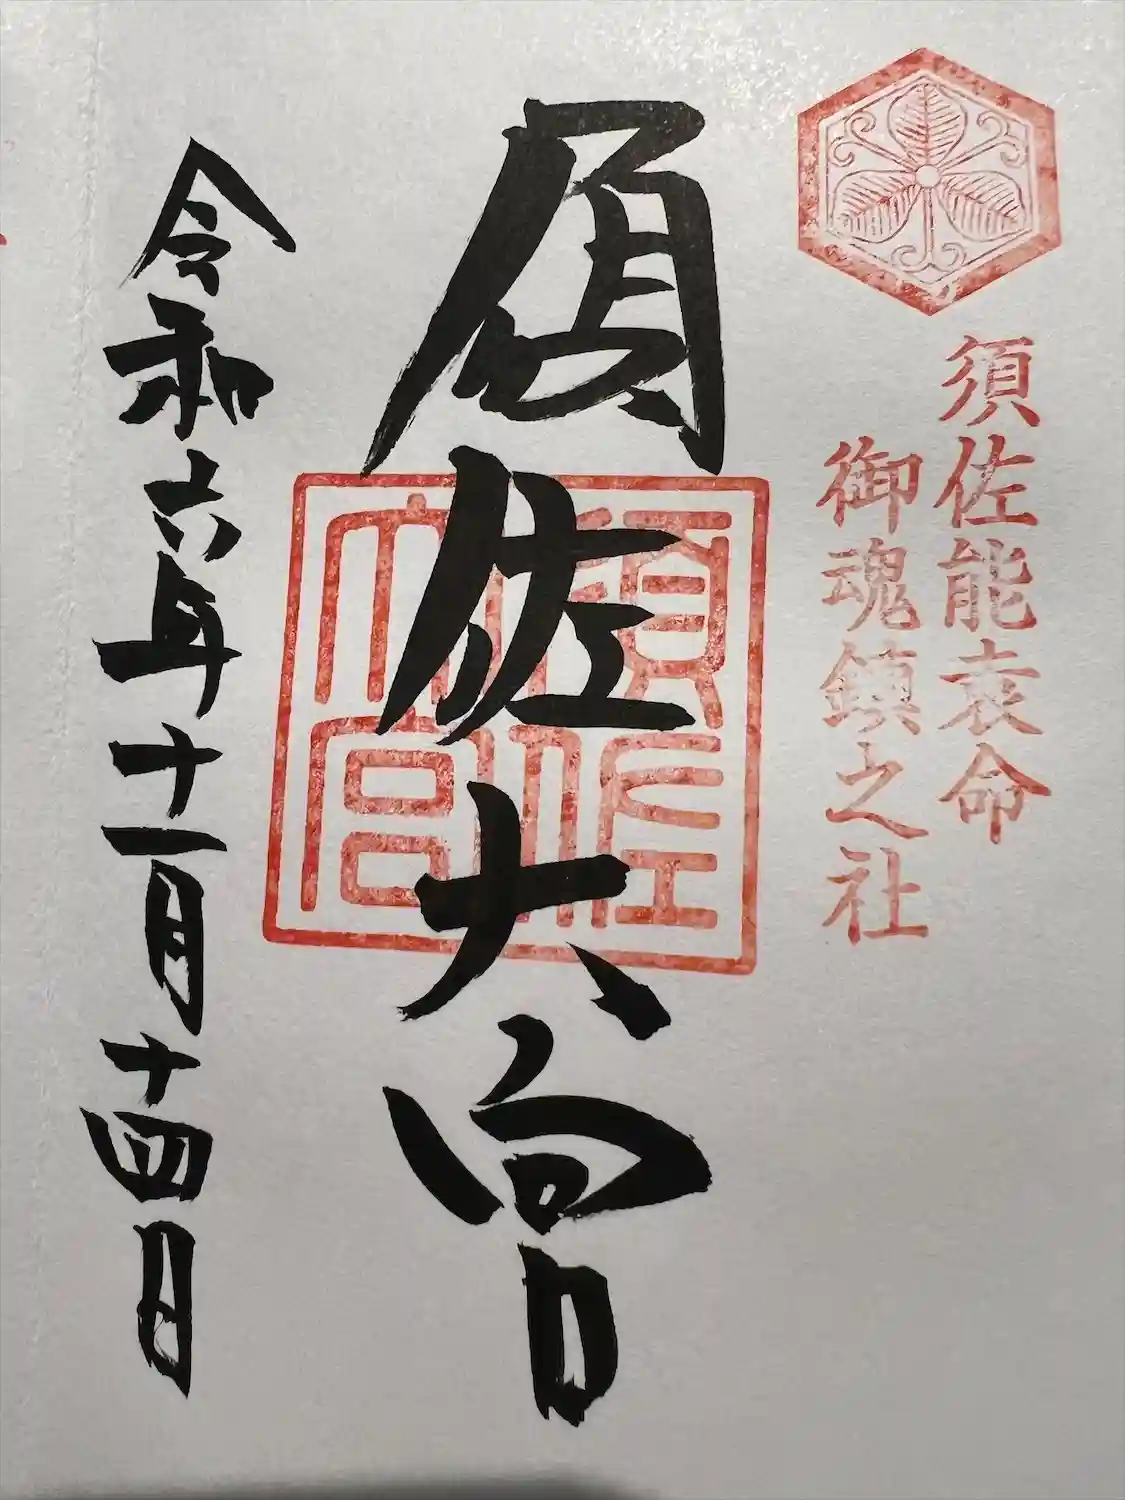 須佐能袁命
御魂鎮之社
須佐大宮
須佐大宮
令和六年十一月十四日